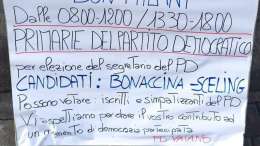 DON MILANI
Dalle 0800-1200 / 1330-18.00
PRIMARIE DEL PARTITO DEMOCRATICO
per elezione del segretario del PD
CANDIDATI: BONACCINA-SCELING
Possono votare: iscritti e simpatizzanti del PD
Vi aspettiamo per dare il vostro contributo ad
un momento di democrazia partecipata
PD VAIANO